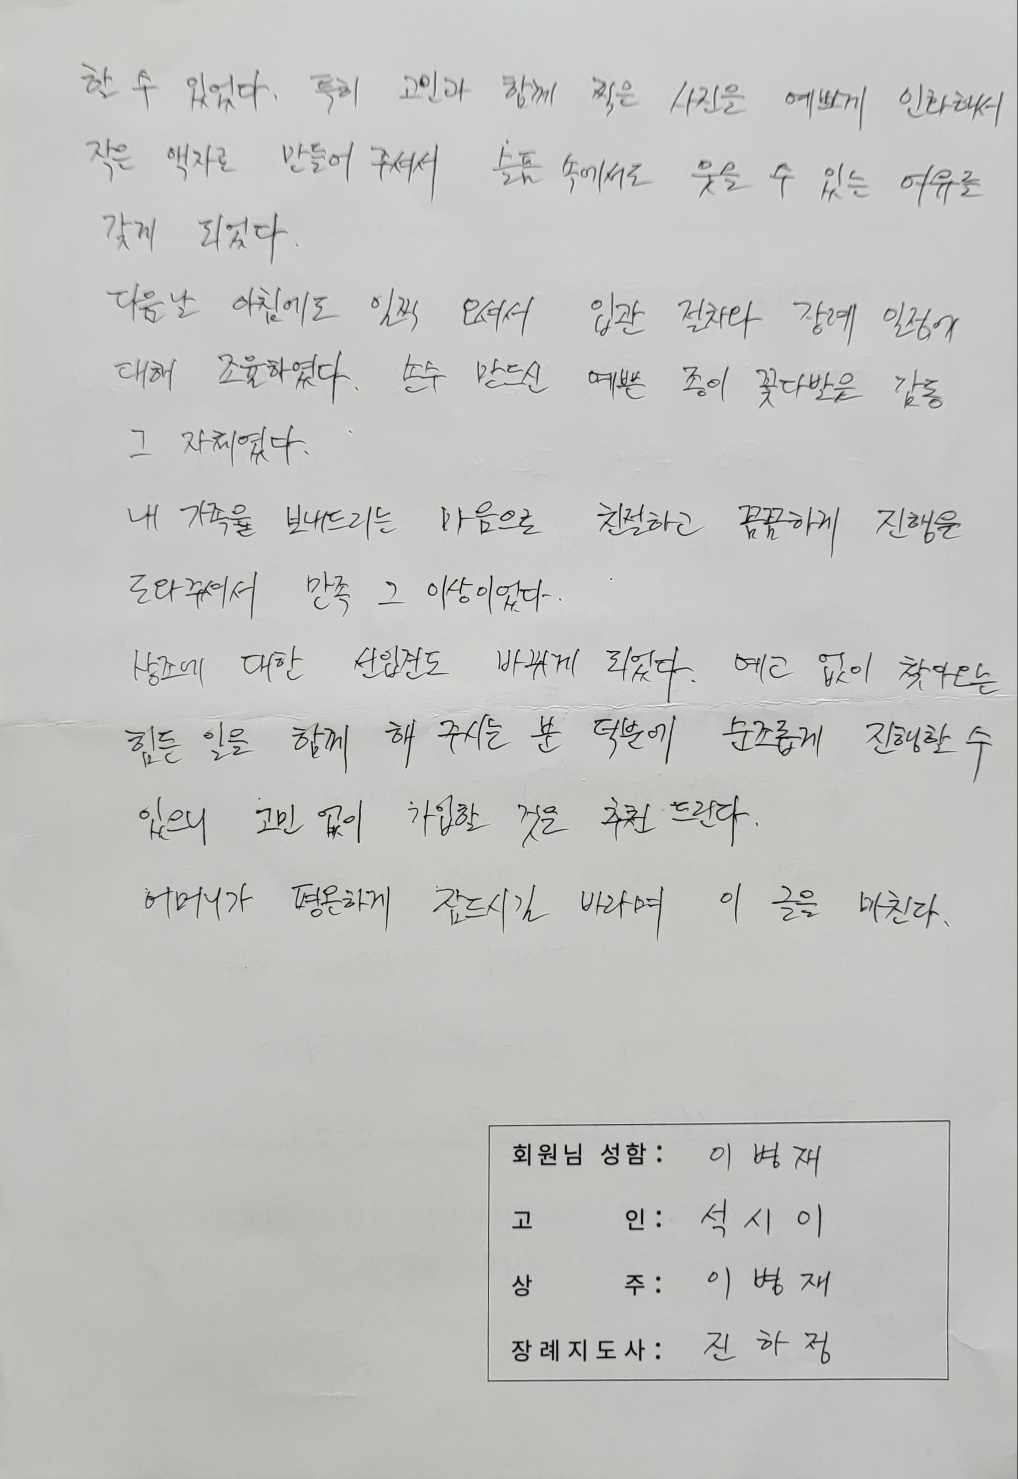 할 수 있었다. 특히 고인과 함께 찍은 사진을 예쁘게 인화해서
작은 액자로 만들어 주셔서 슬픔 속에서도 웃을 수 있는 여유를
갖게 되었다.
다음날 아침에도 일찍 오셔서 입관 절차와 장례 일정에
대해 조율하였다. 손수 만드신 예쁜 종이 꽃다발은 감동
그 자체였다.
내 가족을 보내드리는 마음으로 친절하고 꼼꼼하게 진행을
도와주셔서 만족 그 이상이었다.
상조에 대한 선입견도 바뀌게 되었다. 예고 없이 찾아오는
힘든 일을 함께 해 주시는 분 덕분에 순조롭게 진행할 수
있으니 고민 없이 가입할 것을 추천 드린다.
어머니가 평온하게 잠드시길 바라며 이 글을 마친다.
회원님 성함: 이병재
고 인: 석시이
상 주: 이병재
장례지도사: 진하정